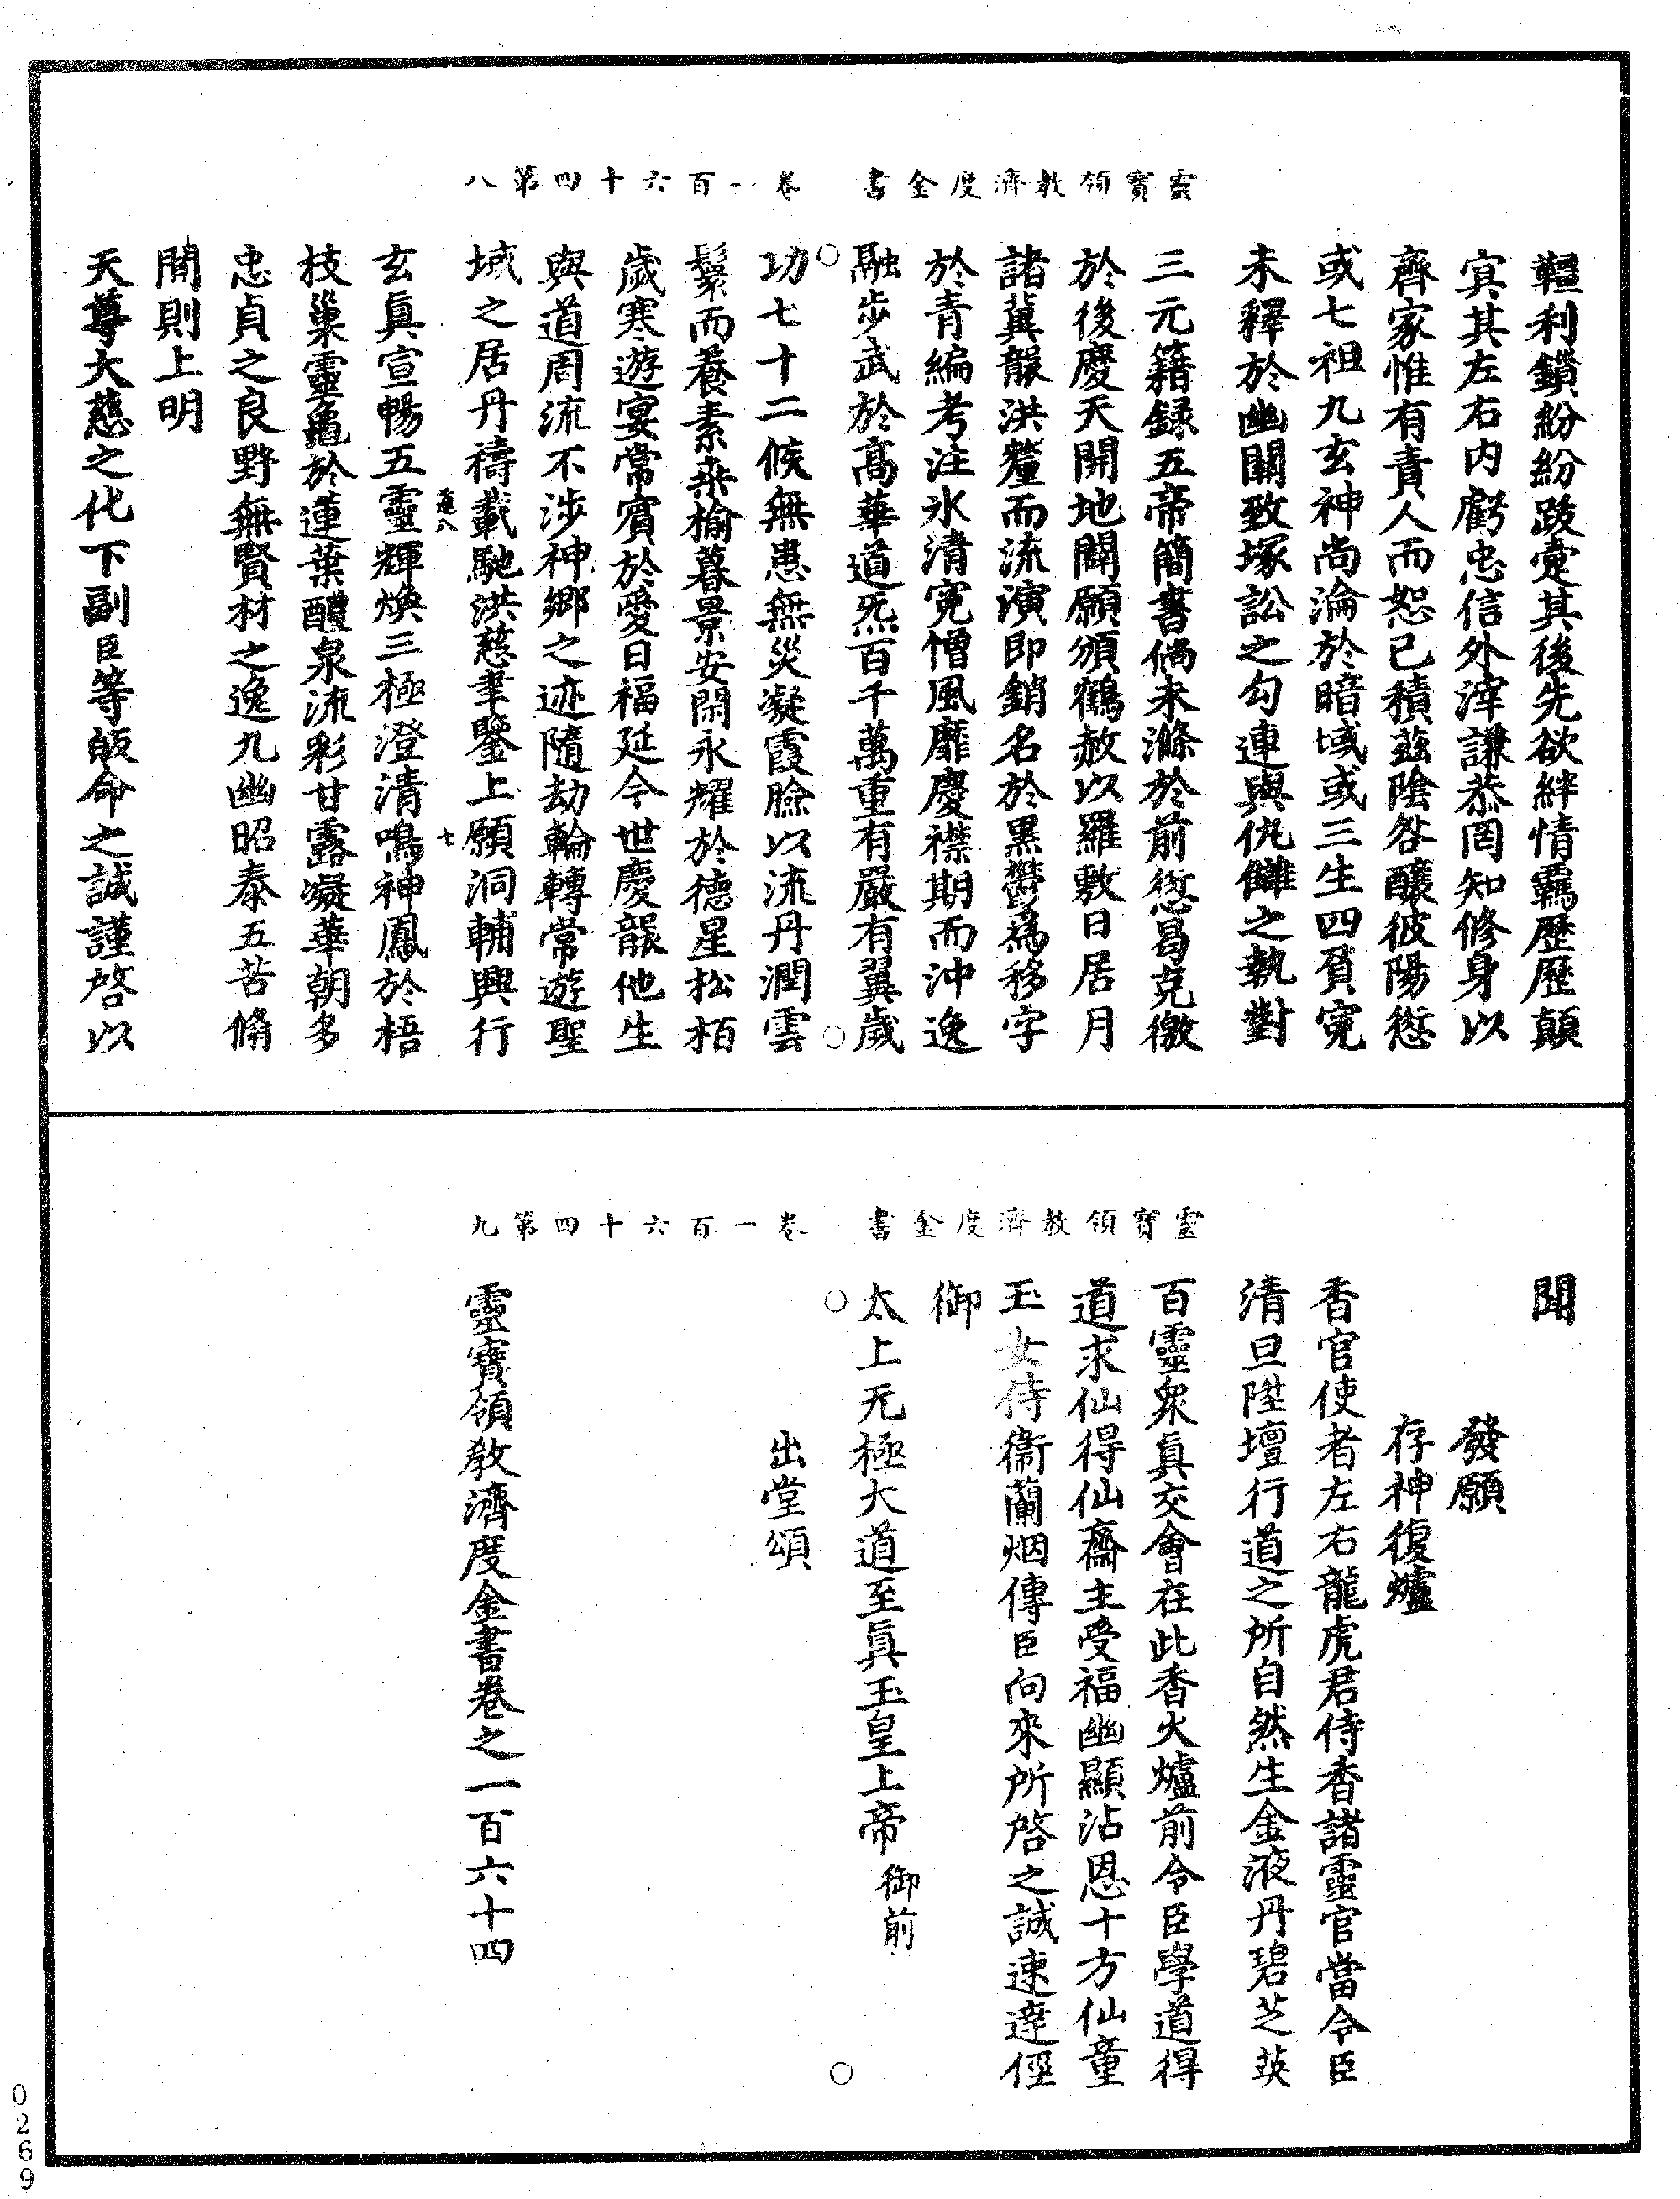 靈寶領教濟度金書 卷一百六十四第八
韁利鎖紛紛跋疐其後先欲絆情羈歷歷顛
寘其左右内虧忠信外滓謙恭罔知修身以
齊家惟有責人而恕己積茲陰咎釀彼陽愆
或七祖九玄神尚淪於暗域或三生四貟寃
未釋於幽關致塚訟之勾連與仇讎之執對
三元籍録五帝簡書倘未滌於前愆曷克徼
於後慶天開地闢願頒鶴赦以羅敷日居月
諸冀龍洪釐而流演即銷名於黑鬱爲移字
於青編考注氷清寃憎風靡慶襟期而沖逸
融步武於高華道炁百千萬重有嚴有翼歲
功七十二候無恚無災凝霞臉以流丹潤雲
鬒而養素桒榆暮景安閑永耀於德星松栢
歲寒遊宴常賓於愛日福延今世慶龍他生
與道周流不涉神郷之迹隨劫輪轉常遊聖
域之居丹禱載馳洪慈聿鑒上願洞輔興行
道八 七
玄真宣暢五靈輝煥三極澄清鳴神鳳於梧
枝巢靈龜於蓮葉醴泉流彩甘露凝華朝多
忠貞之良野無賢材之逸九幽昭泰五苦翛
閒則上明
天尊大慈之化下副臣等皈命之誠謹啓以
靈寶領教濟度金書 卷一百六十四第九
聞
發願
存神復爐
香官使者左右龍虎君侍香諸靈官當令臣
清旦陞壇行道之所自然生金液丹碧芝英
百靈衆真交會在此香火爐前令臣學道得
道求仙得仙齋主受福幽顯沾恩十方仙童
玉女侍衞蘭烟傳臣向來所啓之誠速達徑
御
太上无極大道至真玉皇上帝御前
出堂頌
靈寶領教濟度金書卷之一百六十四
0269